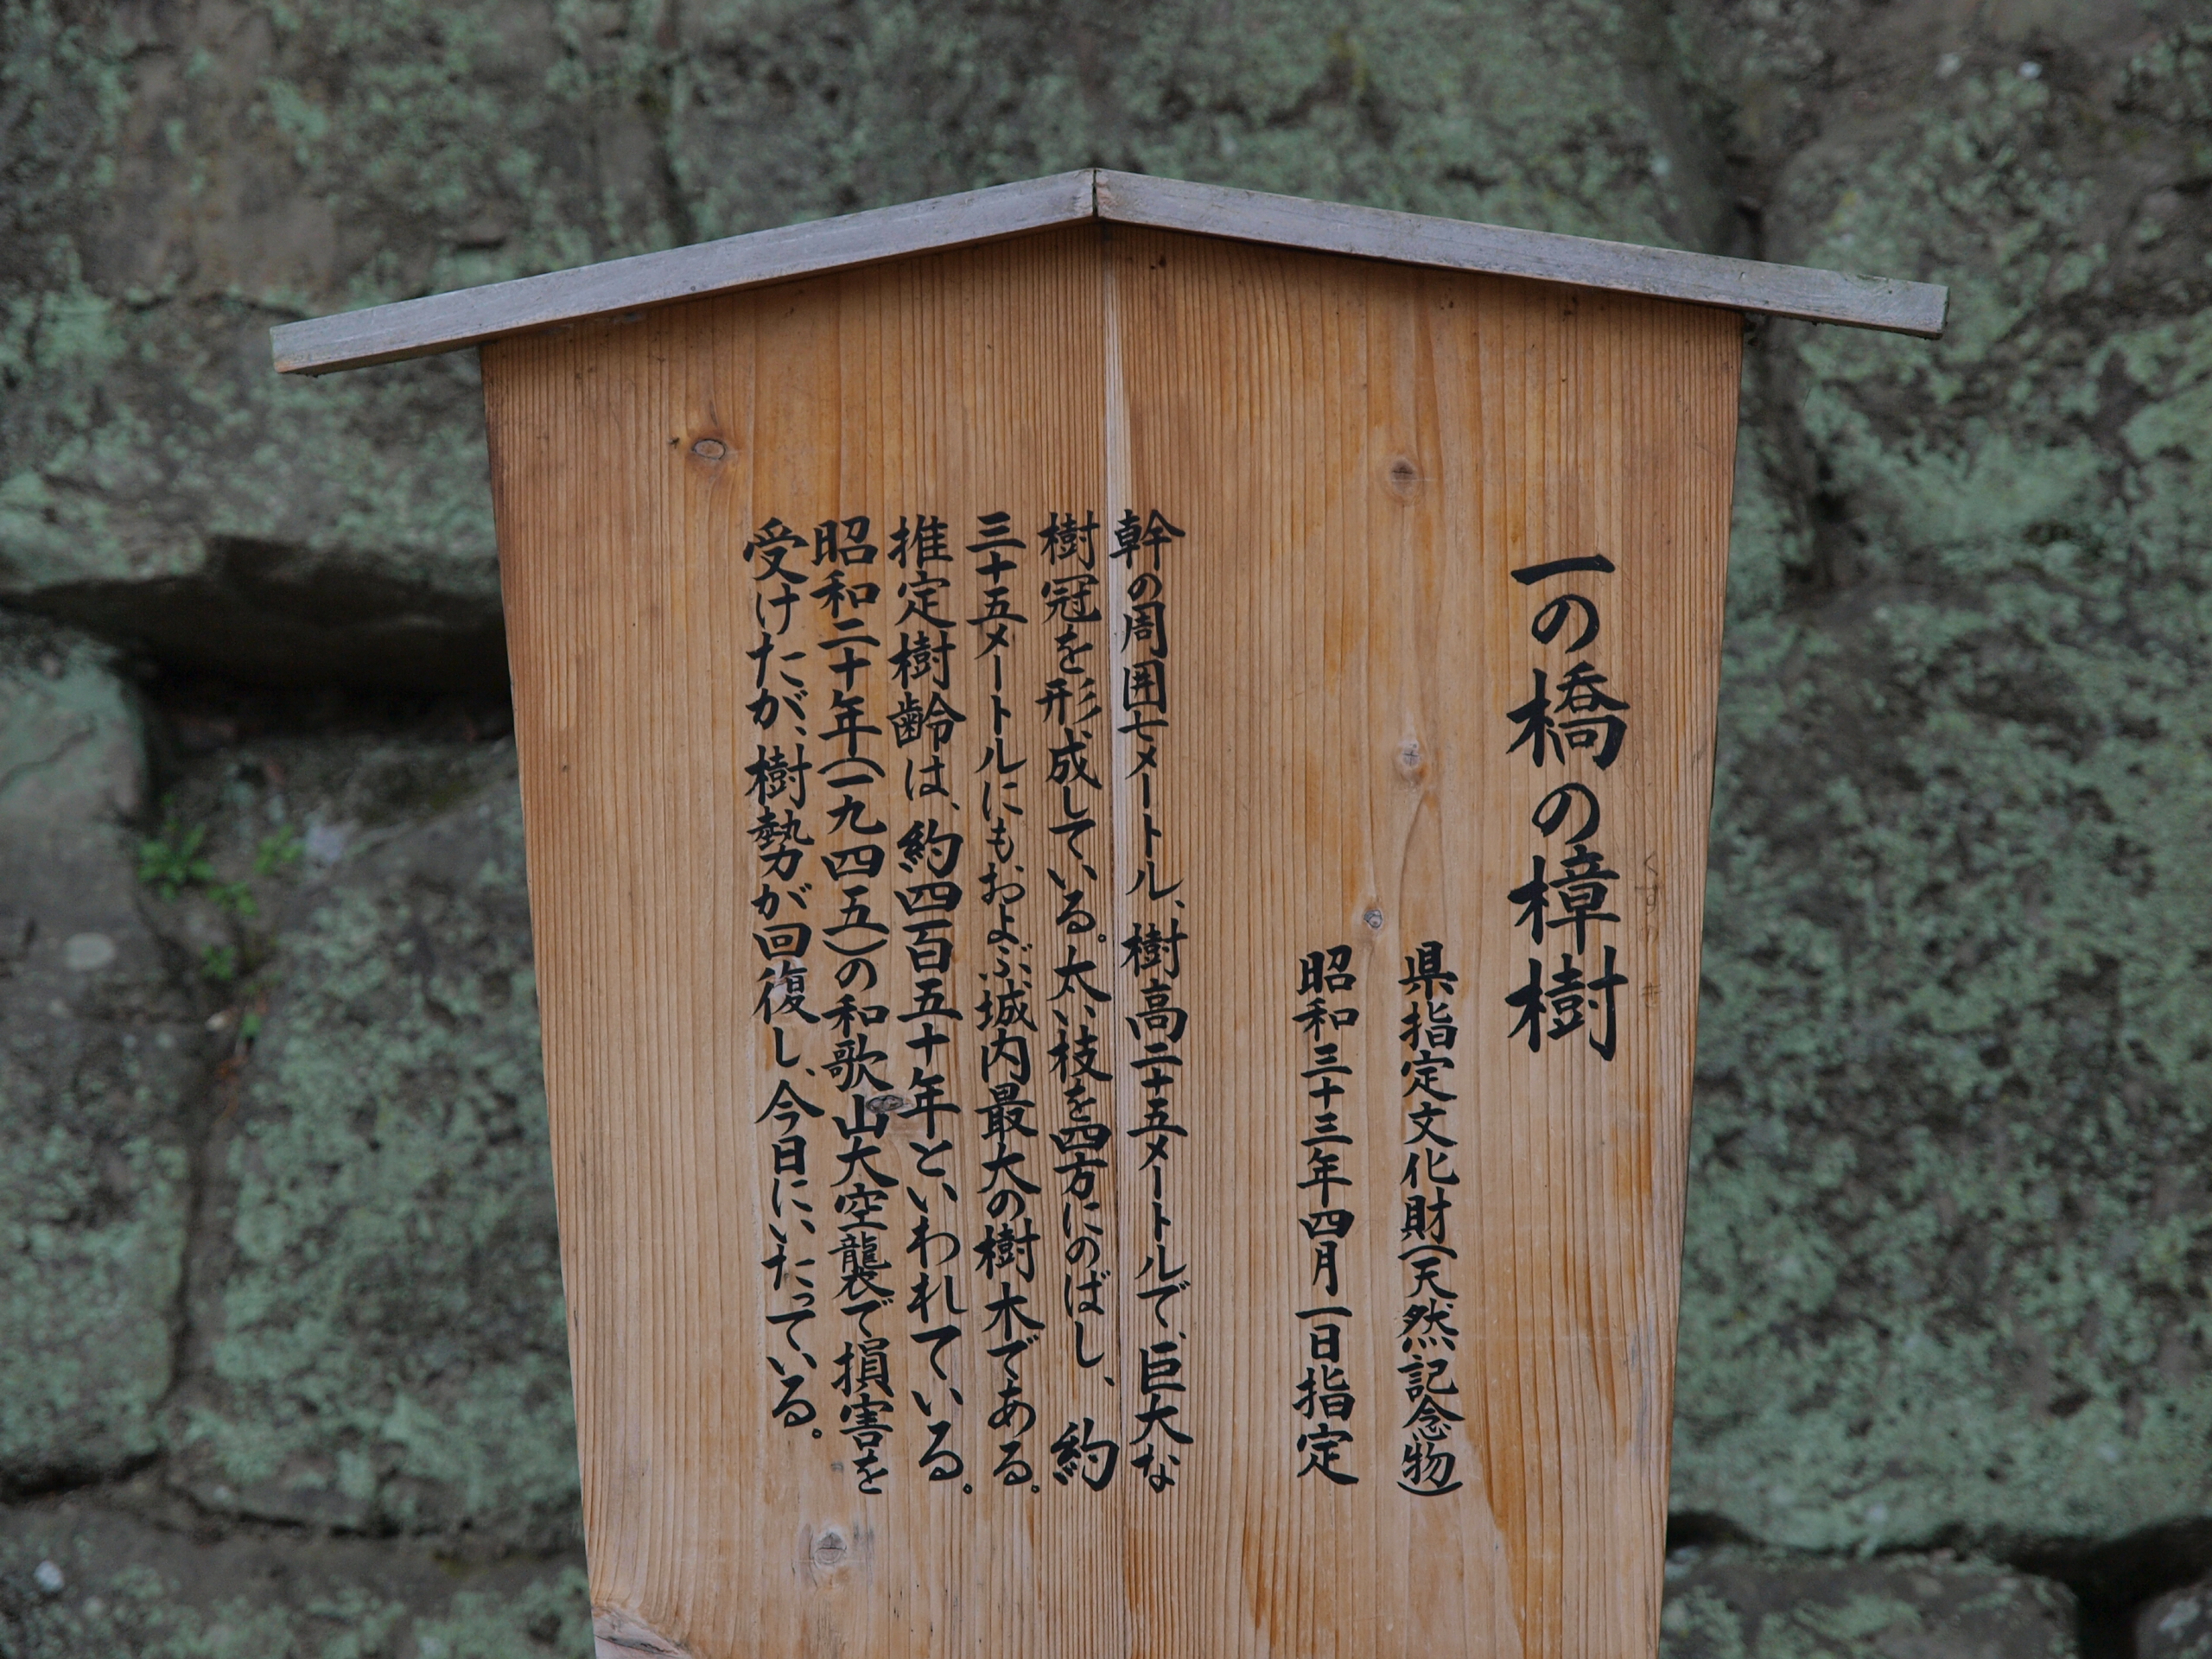 一の橋の樟樹
県指定文化財(天然記念物)
昭和三十三年四月一日指定
幹の周囲七メートル、樹高二十五メートルで、巨大な
樹冠を形成している。太い枝を四方にのばし、約
三十五メートルにもおよぶ城内最大の樹木である。
推定樹齢は、約四百五十年といわれている。
昭和二十年(一九四五)の和歌山大空襲で損害を
受けたが、樹勢が回復し、今日にいたっている。